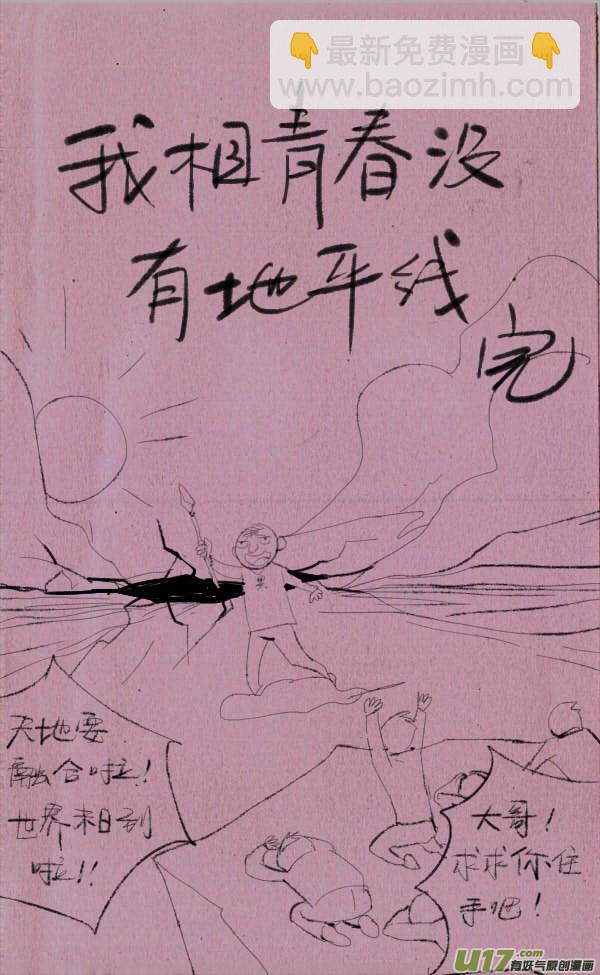 👇最新免费漫画👇
www.baozimh.com
我相青春没
有地平线
完
天地要
融合啦！
世界末日到
啦！！
大哥！
求求你住
手吧！
U17.com
有妖气原创漫画